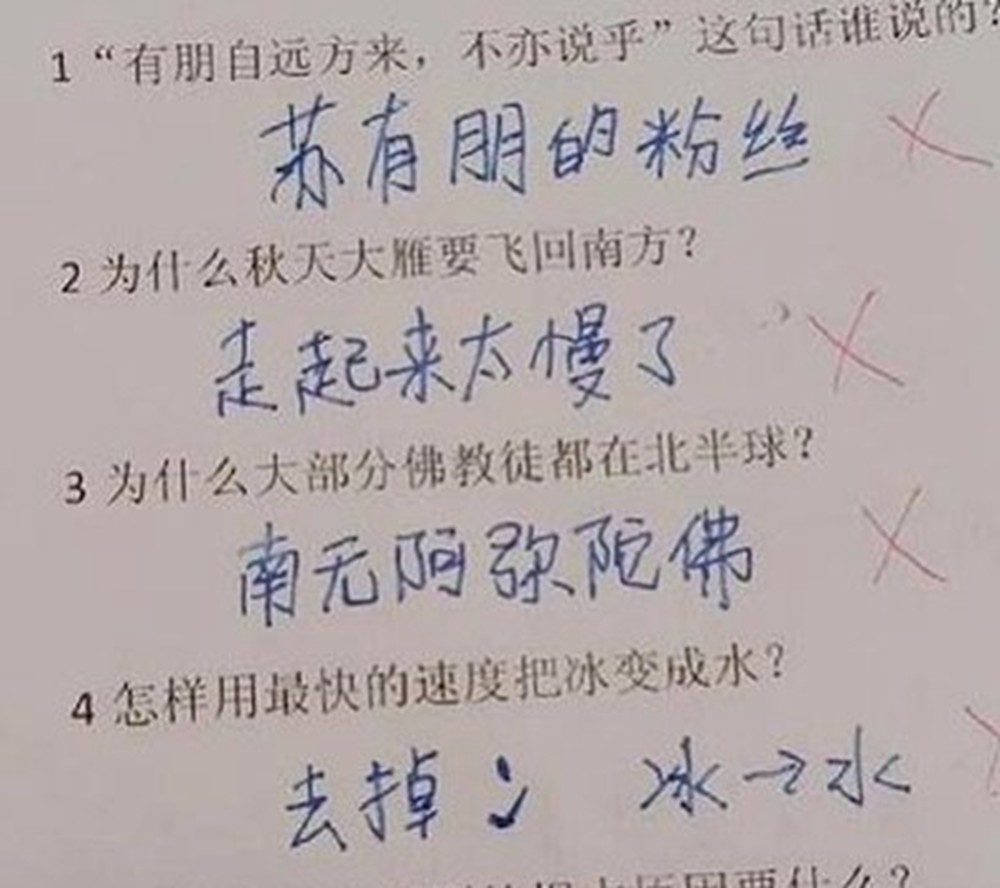 1 “有朋自远方来，不亦说乎”这句话谁说的？
苏有朋的粉丝
2 为什么秋天大雁要飞回南方？
走起来太慢了
3 为什么大部分佛教徒都在北半球？
南无阿弥陀佛
4 怎样用最快的速度把冰变成水？
去掉冫 冰→水
要什么？